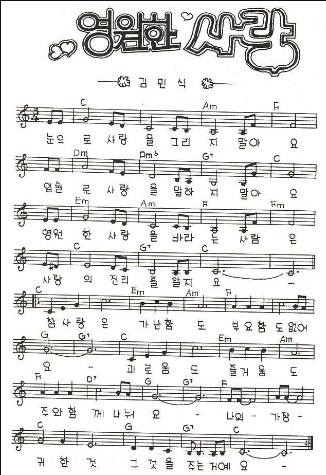 영원한 사랑
김민식
C Am F
눈으 로 사랑 을 그리 지 말아 요
Dm Dm6 G7 C
입술 로 사랑 을 말하지 말아 요
Em Am F Fm
영원 한 사랑 을 바라 는 사람 은
C G7 C
사랑 의 진리 를 알지 요 -
C Em Am
참 사랑 은 가난함 도 부요함 도 없어
G G7 C Em Am
요 - 괴로움 도 즐거움 도
F D7 G G7 C
주와함 께 나눠 요 - 나의 가장
F C G7 C
귀 한 것 그 것을 주는거예 요